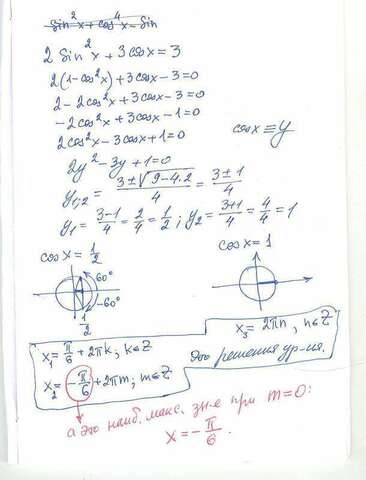 sin²x + cos⁴x - sin
2 sin²x + 3cosx = 3
2(1-cos²x) + 3cosx - 3 = 0
2 - 2cos²x + 3cosx - 3 = 0
-2cos²x + 3cosx - 1 = 0
2cos²x - 3cosx + 1 = 0 cosx ≡ y
2y² - 3y + 1 = 0
y₁,₂ = (3 ± √(9-4·2))/4 = (3 ± 1)/4
y₁ = (3-1)/4 = 2/4 = 1/2 ; y₂ = (3+1)/4 = 4/4 = 1
cosx = 1/2 cosx = 1
60°
-60°
1/2
x₃ = 2πn, n∈Z
x₁ = π/6 + 2πk; k∈Z Это решения ур-ия.
x₂ = -π/6 + 2πm; m∈Z
а это наиб. макс. зн-е при m=0:
x = -π/6.